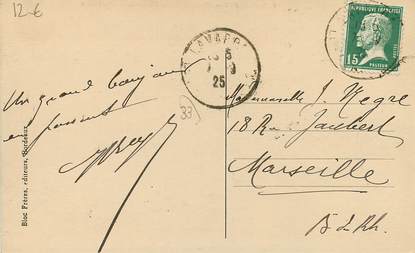 12 €
RÉPUBLIQUE FRANÇAISE
15c
PASTEUR
LAVARD
5
9
25
Un grand bonjour
en passant
33
Mademoiselle J. Negre
18 Rue Jaubert
Marseille
B d Rh.
Bloc Frères, éditeurs, Bordeaux